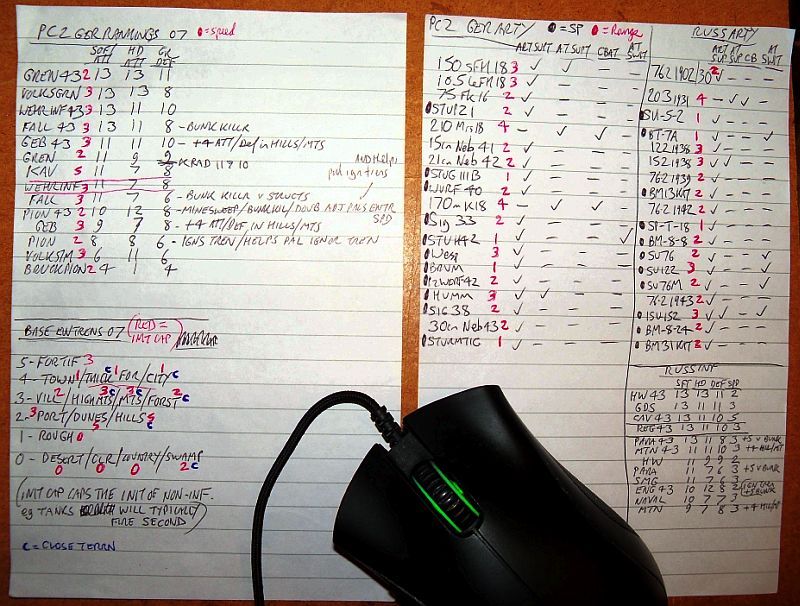 PC2 GER RANKINGS 07 0=speed
SOFT ATT HD ATT GR DEF
GREN 43 2 13 13 11
VOLKSGRN 3 13 13 8
WEHR INF 43 3 13 11 10
FALL 43 3 13 11 8 - BUNK KILLR
GEB 43 3 11 11 10 - +4 ATT/DEF IN HILLS/MTS
GREN 2 11 9 9
KRAD 11 7 10
KAV 5 11 7 8
WEHR INF 3 11 7 8
FALL 3 11 7 6 - BUNK KILLR V STRUCTS
PION 43 2 10 12 8 - MINESWEEP/BUNK KIL/DOUB ADJ PALS ENTR SPD
AND HELPS pal ign trens
GEB 3 9 7 8 - +4 ATT/DEF IN HILLS/MTS
PION 2 8 8 6 - IGNS TREN/HELPS PAL IGNOR TREN
VOLKSTM 3 6 11 6
BRUCKPION 2 4 1 4
BASE ENTRENS 07 (RED = INIT CAP)
5 - FORTIF 3
4 - TOWN 1/THICK FOR 1/CITY 1 C
3 - VILL 2/HIGH MTS 3 C/MTS 3 C/FORST 2 C
2 - 3 PORT/DUNES/HILLS 5
1 - ROUGH 5 C
0 - DESERT/CLR/COUNTRY/SWAMP
0 0 0 2 C
(INIT CAP CAPS THE INIT OF NON-INF.
eg TANKS WILL TYPICALLY
FIRE SECOND)
C = CLOSE TERRN
PC2 GER ARTY 0=SP 0=Range
ART SUPT AT SUPT CBAT AT SWT
150 SFH 18 3 ✓ ✓ - -
10.5 LeFH 18 3 ✓ - - -
75 FK 16 2 ✓ - - -
STU 121 2 ✓ - - -
210 Mrs 18 4 ✓ - ✓ -
15cm Neb 41 2 ✓ - - -
21cm Neb 42 2 ✓ - - -
STUG IIIB 1 ✓ - - -
WURF 40 2 ✓ - - -
170m K18 4 ✓ ✓ ✓ -
SIG 33 2 ✓ - - -
STUH 42 1 ✓ - - ✓
Wesp 3 ✓ - - -
BRUM 1 ✓ - - -
PZ WURF 42 2 ✓ - - -
HUMM 3 ✓ ✓ - -
SIG 38 2 ✓ - - -
30cm Neb 43 2 ✓ - - -
STURMTIG 1 ✓ - - -
RUSS ARTY
ART SUP AT SUP CB AT SWT
762 1902/30 2 ✓ - - -
203 1931 4 - ✓ ✓ -
SU-5-2 1 ✓ - - -
BT-7A 1 ✓ - - ✓
122 1938 3 ✓ - - -
152 1938 3 ✓ ✓ - -
762 1939 2 ✓ - - -
BM13 KAT 2 ✓ - - -
762 1942 2 ✓ - - -
SP-T-18 1 ✓ - - -
BM-8-8 2 ✓ - - -
SU76 2 ✓ - - ✓
SU122 3 ✓ - - ✓
SU76M 2 ✓ - - ✓
762 1943 2 ✓ - - -
ISU152 3 ✓ ✓ - ✓
BM-8-24 2 ✓ - - -
BM31 KAT 2 ✓ - - -
RUSS INF
SFT HD DEF SPD
HW 43 13 13 11 2
GDS 13 11 11 3
CAV 43 11 11 10 5
REG 43 11 11 10 3
PARA 43 13 11 8 3 +5 V BUNK
MTN 43 11 11 10 3 +4 HILL/MT
HW 11 9 9 2
PARA 11 7 6 3 +5 V BUNK
SMG 11 7 6 3
ENG 43 10 12 8 2 IGN TREN +5 BUNK
NAVAL 10 7 7 3
MTN 9 7 8 3 +4 HILL/MT